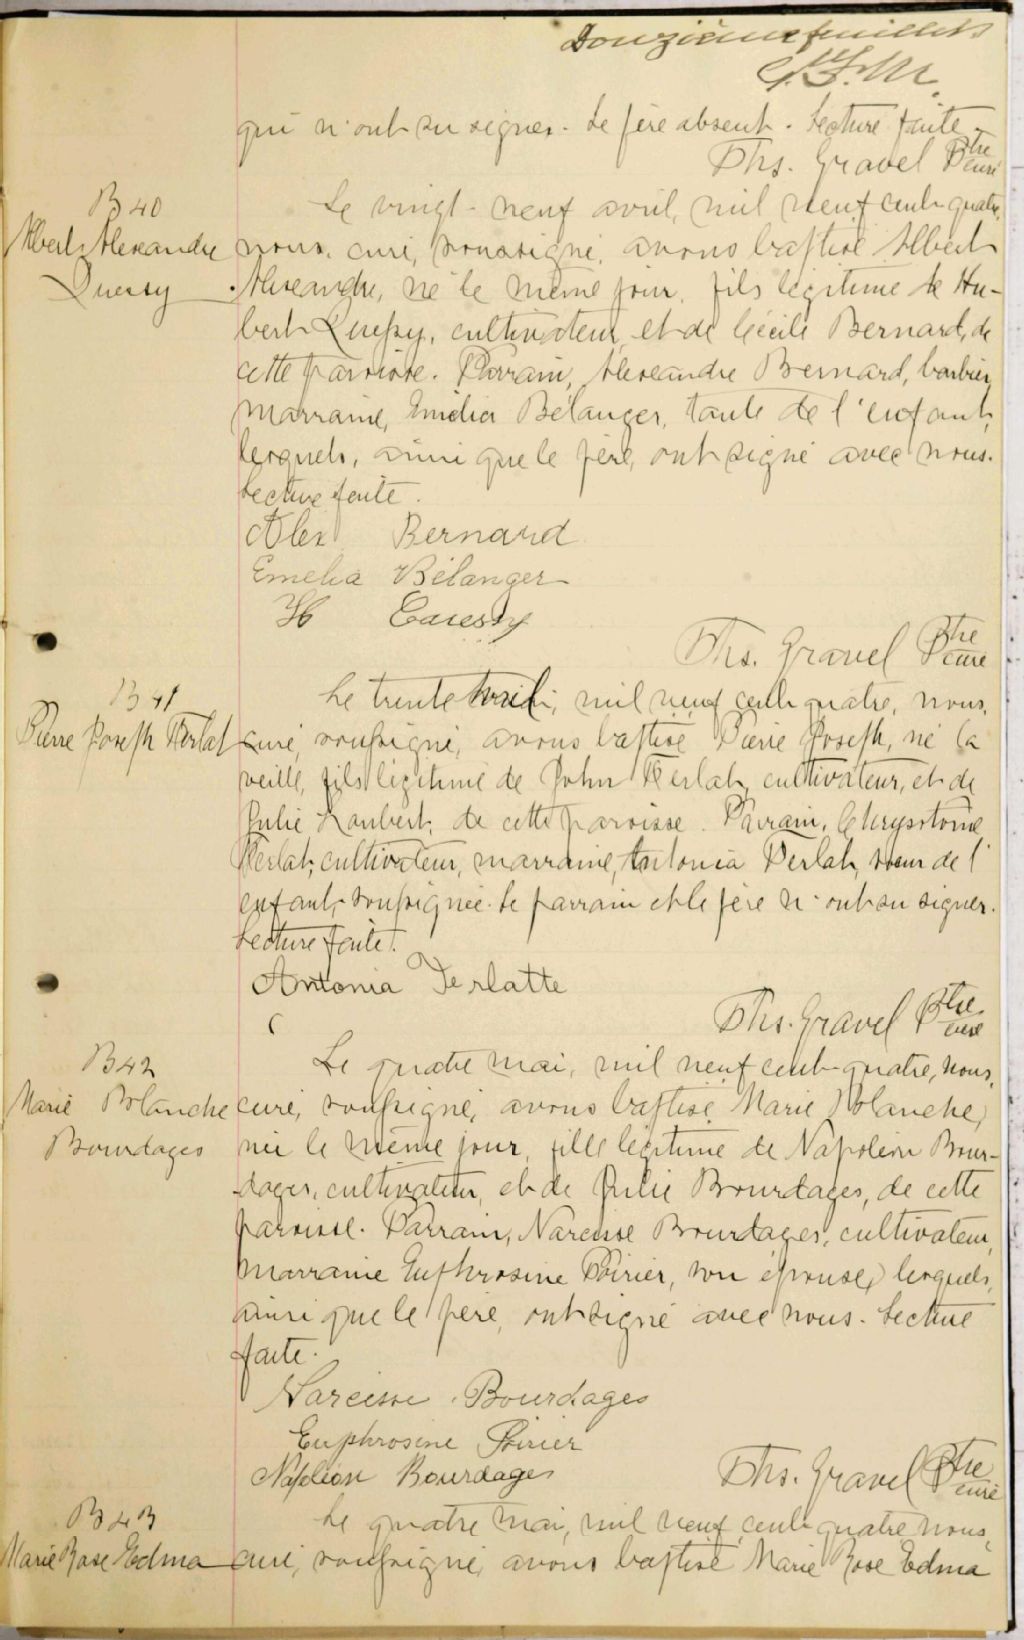 Douzième feuillet
qui n'ont su signer. Le père absent. Lecture faite.
Ths. Gravel Ptre curé
B 40
Albert Alexandre
Quessy
Le vingt-neuf avril, mil neuf cent quatre,
nous, curé, soussigné, avons baptisé Albert
Alexandre, né le même jour, fils légitime de Hu-
bert Quessy, cultivateur, et de Cécile Bernard, de
cette paroisse. Parrain, Alexandre Bernard, barbier,
marraine, Emélia Bélanger, tante de l'enfant,
lesquels, ainsi que le père, ont signé avec nous.
Lecture faite.
Alex Bernard
Emelia Bélanger
H Caiessy
Ths. Gravel Ptre curé
B 41
Pierre Joseph Ferlat
Le trente avril, mil neuf cent quatre, nous,
curé, soussigné, avons baptisé Pierre Joseph, né la
veille, fils légitime de John Ferlat, cultivateur, et de
Julie Loubert, de cette paroisse. Parrain, Chrysstome
Ferlat, cultivateur, marraine, Antonia Ferlat, soeur de l'
enfant, soussignée. Le parrain et le père n'ont su signer.
Lecture faite.
Antonia Ferlatte
Ths. Gravel Ptre curé
B 42
Marie Blanche
Bourdages
Le quatre mai, mil neuf cent quatre, nous,
curé, soussigné, avons baptisé Marie Blanche,
née le même jour, fille légitime de Napoléon Bour-
dages, cultivateur, et de Julie Bourdages, de cette
paroisse. Parrain, Narcisse Bourdages, cultivateur,
marraine Euphrosine Poirier, son épouse, lesquels,
ainsi que le père, ont signé avec nous. Lecture
faite.
Narcisse Bourdages
Euphrosine Poirier
Napoléon Bourdages
Ths. Gravel Ptre curé
B 43
Marie Rose Edma
Le quatre mai, mil neuf cent quatre nous,
curé, soussigné, avons baptisé Marie Rose Edma